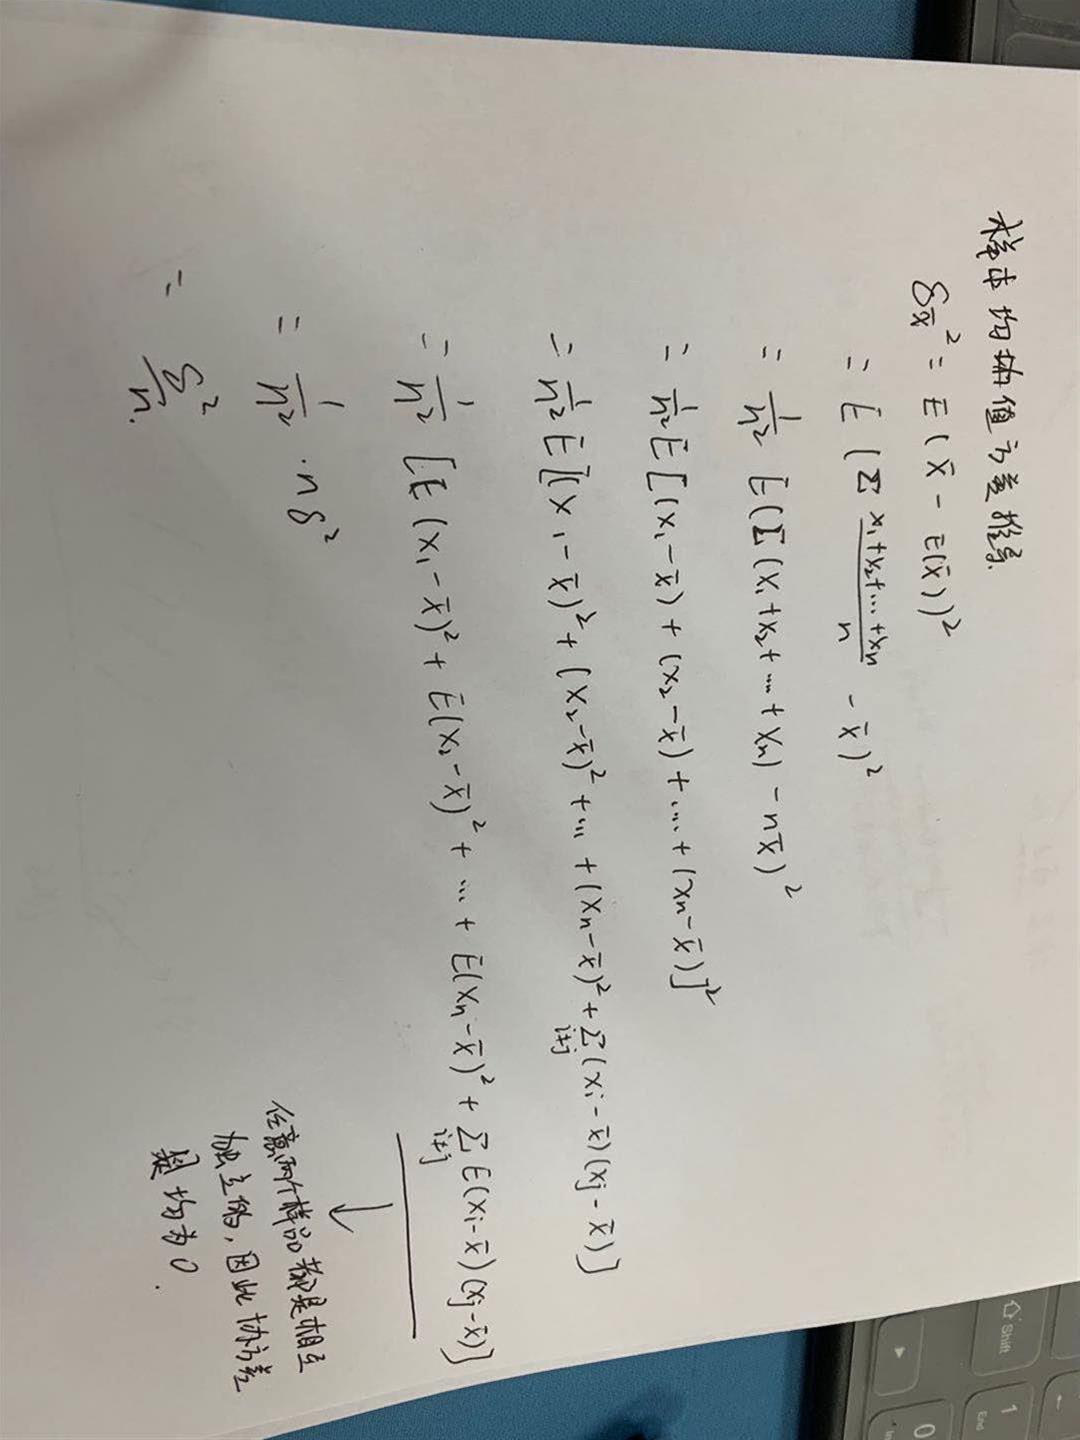 样本均值方差推导
δx̄² = E(x̄ - E(x̄))²
= E(Σ (x₁+x₂+...+xₙ)/n - x̄)²
= 1/n² E(Σ(x₁+x₂+...+xₙ) - nx̄)²
= 1/n² E[(x₁-x̄)+(x₂-x̄)+...+(xₙ-x̄)]²
= 1/n² E[(x₁-x̄)²+(x₂-x̄)²+...+(xₙ-x̄)²+Σ_{i≠j}(xᵢ-x̄)(xⱼ-x̄)]
= 1/n² [E(x₁-x̄)²+E(x₂-x̄)²+...+E(xₙ-x̄)²+Σ_{i≠j}E(xᵢ-x̄)(xⱼ-x̄)]
↓
任意两个样品都是相互
独立的,因此协方差
均为0.
= 1/n² · nδ²
= δ²/n.
Shift
1
End
0